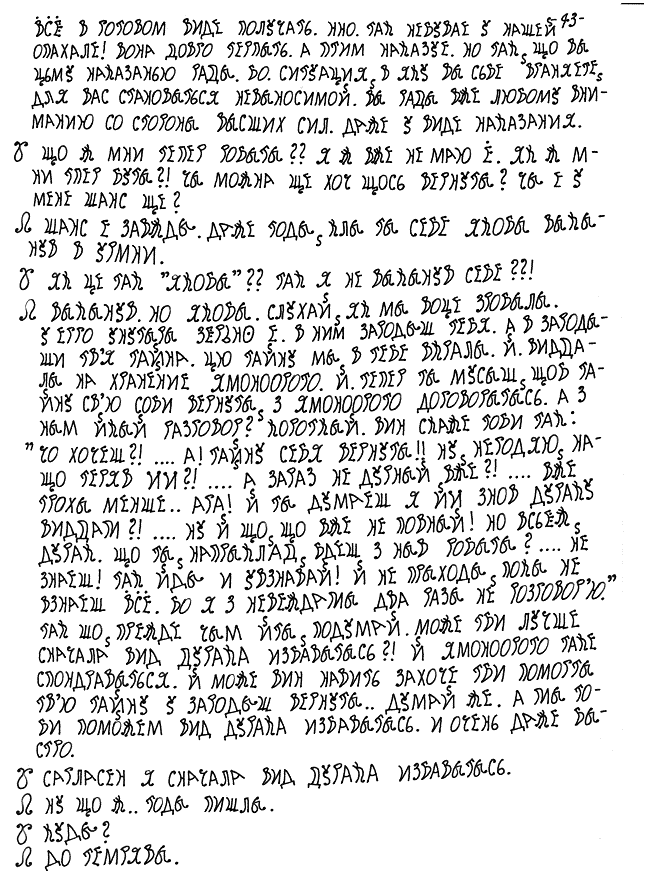 ВСЁ В ГОТОВОМ ВИДЕ ПОЛУЧАТЬ. ННО. ТАК НЕБУВАЕ У НАШЕЙ -43-
ОПАХАЛЕ! ВОНА ДОБРО ТЕРПЫТЬ. А ПТИМ НАКАЗУЕ. НО ТАК, ЩО ВЫ
ЦЬМУ НАКАЗАНЬЮ РАДЫ. БО. СИТУАЦИЯ, В ЯКУ ВЫ СЬБЕ ВГАНЯЕТЕ,
ДЛЯ ВАС СТАНОВЫТЬСЯ НЕВЫНОСИМОЙ. ВЫ РАДЫ ВЖЕ ЛЮБОМУ ВНИ-
МАНИЮ СО СТОРОНЫ ВЫСШИХ СИЛ. ДАЖЕ У ВИДЕ НАКАЗАНИЯ.
♉ ЩО Ж МНИ ТЕПЕР РОБЫТЫ?? Я Ж ВЖЕ НЕ МАЮ Ё. ЯК Ж М-
НИ ТПЕР БУТЫ?! ЧЫ МОЖНА ЩЕ ХОЧ ЩОСЬ ВЕРНУТЫ? ЧЫ Е У
МЕНЕ ШАНС ЩЕ?
♌ ШАНС Е ЗАВЖДЫ. ДАЖЕ ТОДЫ, КЛЫ ТЫ СЕБЕ ЯКОБЫ ВЫКЫ-
НУВ В УРМНИ.
♉ ЯК ЦЕ ТАК "ЯКОБЫ"?? ТАК Я НЕ ВЫКЫНУВ СЕБЕ??!
♌ ВЫКЫНУВ. НО ЯКОБЫ. СЛУХАЙ, ЯК МЫ ВОЦЕ ЗРОБЫЛЫ.
У ЕГГО УНУТЫРЫ ЗЕРЬНО Е. В НИМ ЗАРОДЫШ ТЕБЯ. А В ЗАРОДЫ-
ШИ ТВ'Я ТАЙНА. ЦЮ ТАЙНУ МЫ, В ТЕБЕ ВКРАЛЫ. Й. ВИДДА-
ЛЫ НА ХРАНЕНИЕ ЯМОНООРОГО. Й. ТЕПЕР ТЫ МУСЫШ, ЩОБ ТА-
ЙНУ СВ'Ю СОБИ ВЕРНУТЫ, З ЯМОНООРОГО ДОГОВОРЫТЫСЬ. А З
НЫМ ЙКЫЙ РАЗГОВОР? КОРОТКЫЙ. ВИН СКАЖЕ ТОБИ ТАК:
"ЧО ХОЧЕШ?! .... А! ТАЙНУ СЕБЯ ВЕРНУТЫ!! НУ, НЕГОДЯЮ, НА-
ЩО ТЕРЯВ ИИ?! .... А ЗАРАЗ НЕ ДУРНЫЙ ВЖЕ?! .... ВЖЕ
ТРОХЫ МЕНШЕ.. АГА! Й ТЫ ДУМАЕШ Я ЙИ ЗНОВ ДУРАКУ
ВИДДАМ?! .... НУ Й ЩО, ЩО ВЖЕ НЕ ПОВНЫЙ! НО ВСЬЕЖ,
ДУРАК. ЩО ТЫ, НАПРЫКЛАД, БДЕШ З НЫВ РОБЫТЫ? .... НЕ
ЗНАЕШ! ТАК ЙДЫ И УВЗНАВАЙ! Й НЕ ПРЫХОДЫ, ПОКЫ НЕ
ВЗНАЕШ ВСЁ. БО Я З НЕВЕЖДАМЫ ДВА РАЗЫ НЕ РОЗГОВОР'Ю."
ТАК ШО, ПРЕЖДЕ ЧЫМ ЙТЫ, ПОДУМАЙ. МОЖЕ ТБИ ЛУЧШЕ
СНАЧАЛА ВИД ДУРАКА ИЗБАВЫТЫСЬ?! Й ЯМОНООРОГО ТАКЕ
СПОНДРАВЫТЬСЯ. Й МОЖЕ ВИН НАВИТЬ ЗАХОЧЕ ТБИ ПОМОГТЫ
ТВ'Ю ТАЙНУ У ЗАРОДЫШ ВЕРНУТЫ.. ДУМАЙ ЖЕ. А МЫ ТО-
БИ ПОМОЖЕМ ВИД ДУРАКА ИЗБАВЫТЫСЬ. И ОЧЕНЬ ДАЖЕ БЫ-
СТРО.
♉ САГЛАСЕН Я СНАЧАЛА ВИД ДУРАКА ИЗБАВЫТЫСЬ.
♌ НУ ЩО Ж.. ТОДЫ ПИШЛЫ.
♉ КУДЫ?
♌ ДО ТЕМРЯВЫ.